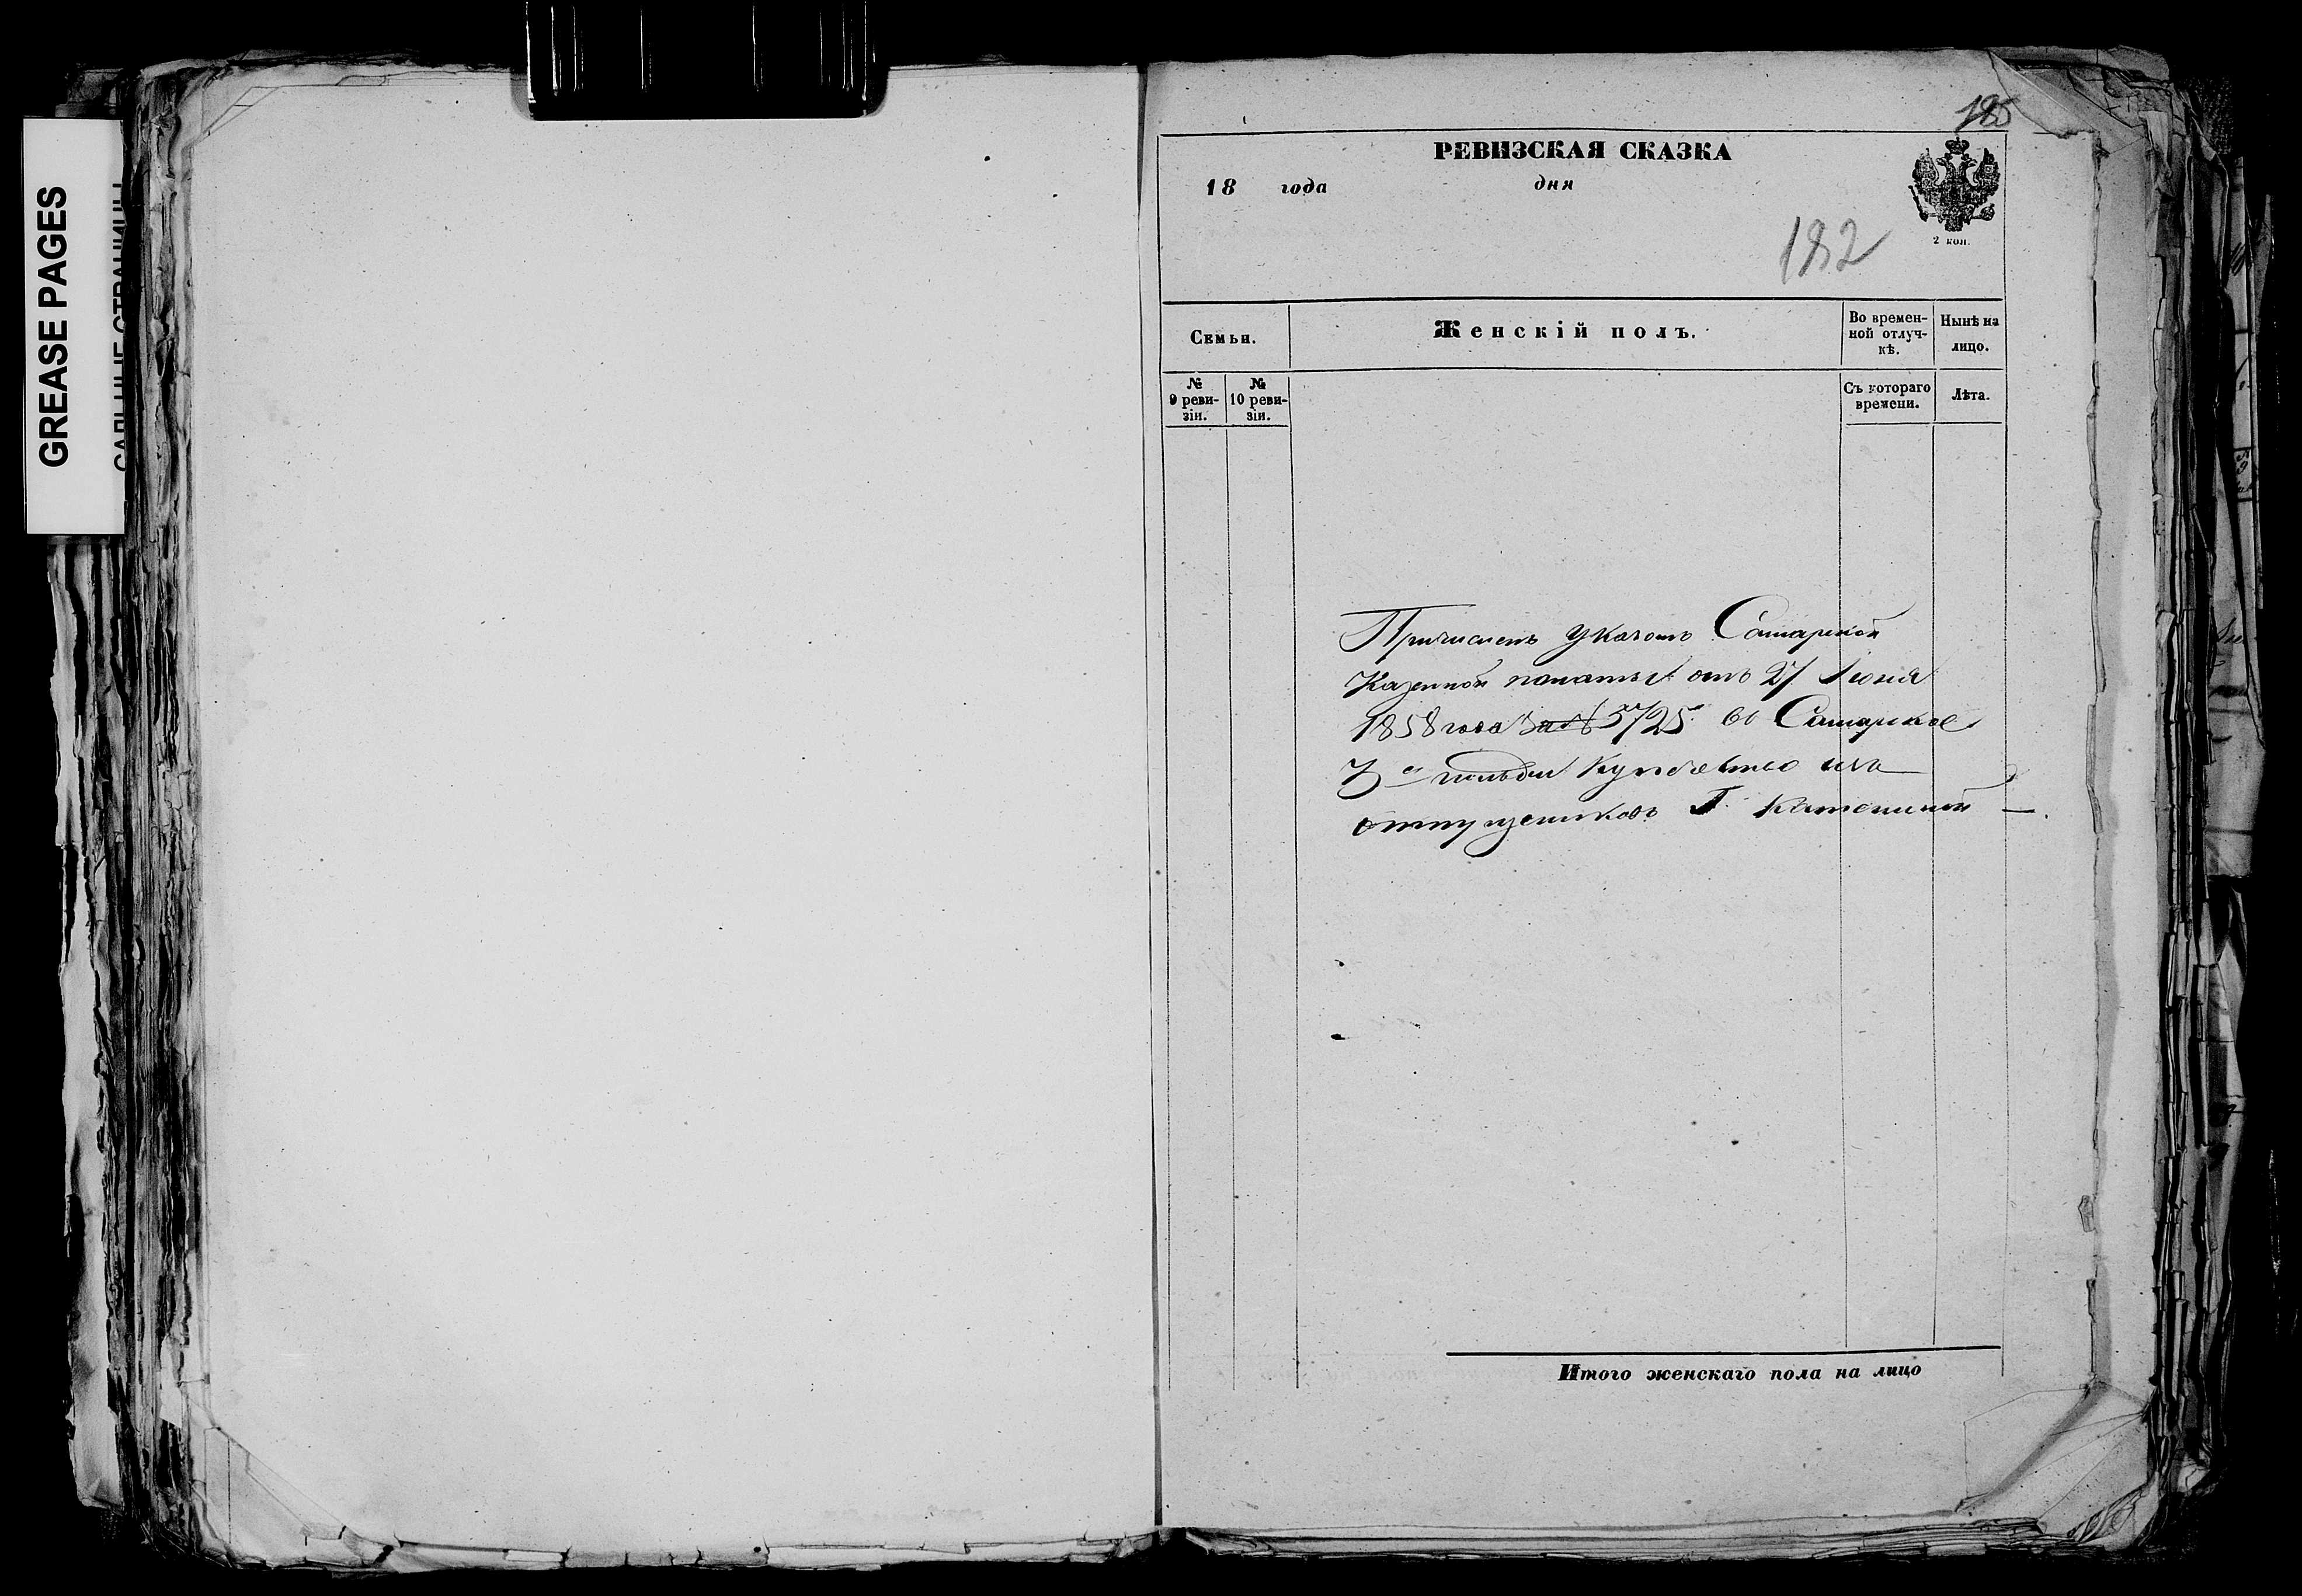 GREASE PAGES
САЛЬНЫЕ СТРАНИЦЫ
185
РЕВИЗСКАЯ СКАЗКА
18 года дня
2 коп.
182
Семьи.
Женскій полъ.
Во времен-
ной отлуч-
кѣ.
Нынѣ на
лицо.
№
9 реви-
зіи.
№
10 реви-
зіи.
Съ котораго
времени.
Лѣта.
Причисленъ указомъ Самарской
Казенной палаты отъ 27 Іюня
1858 года за № 5725 въ Самарское
3й гильдии купечество изъ
отпущенниковъ Г. Катениной
Итого женскаго пола на лицо